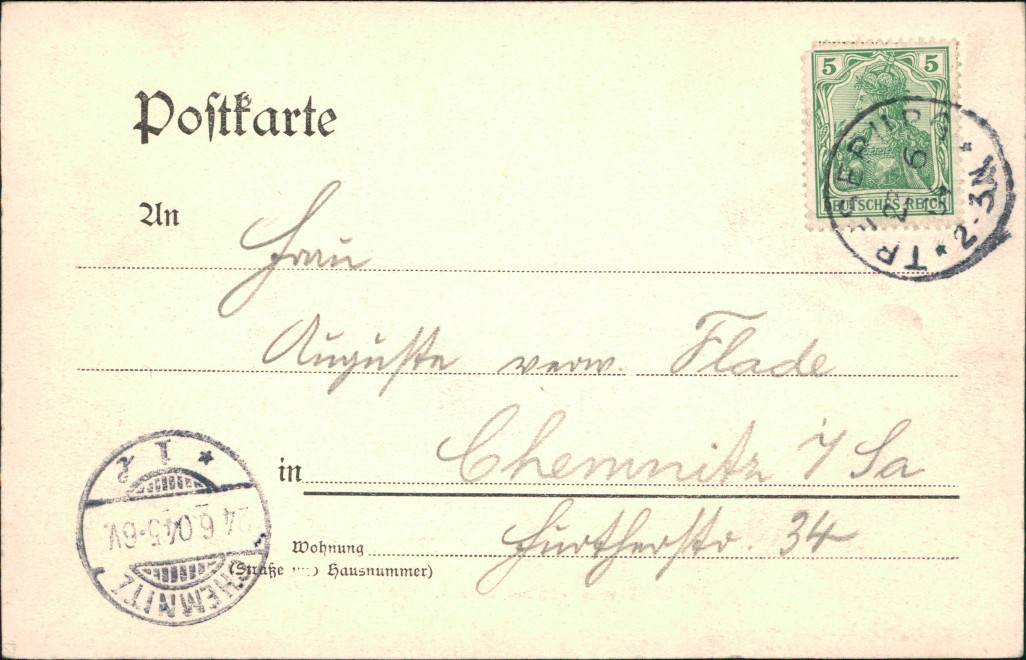 Postkarte
5 5
DEUTSCHES REICH
TRIBERG
6
* 2-3N *
An
Frau
Auguste verw. Flade
in Chemnitz i/Sa
Wohnung Fürtherstr. 34
(Straße und Hausnummer)
* 1 *
24.6.04.5-6V.
CHEMNITZ